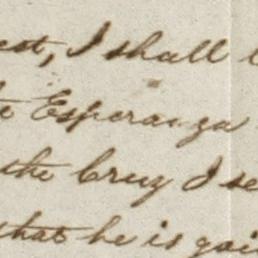 est, I shall
Esperanza
the Cruz I se
that he is goi